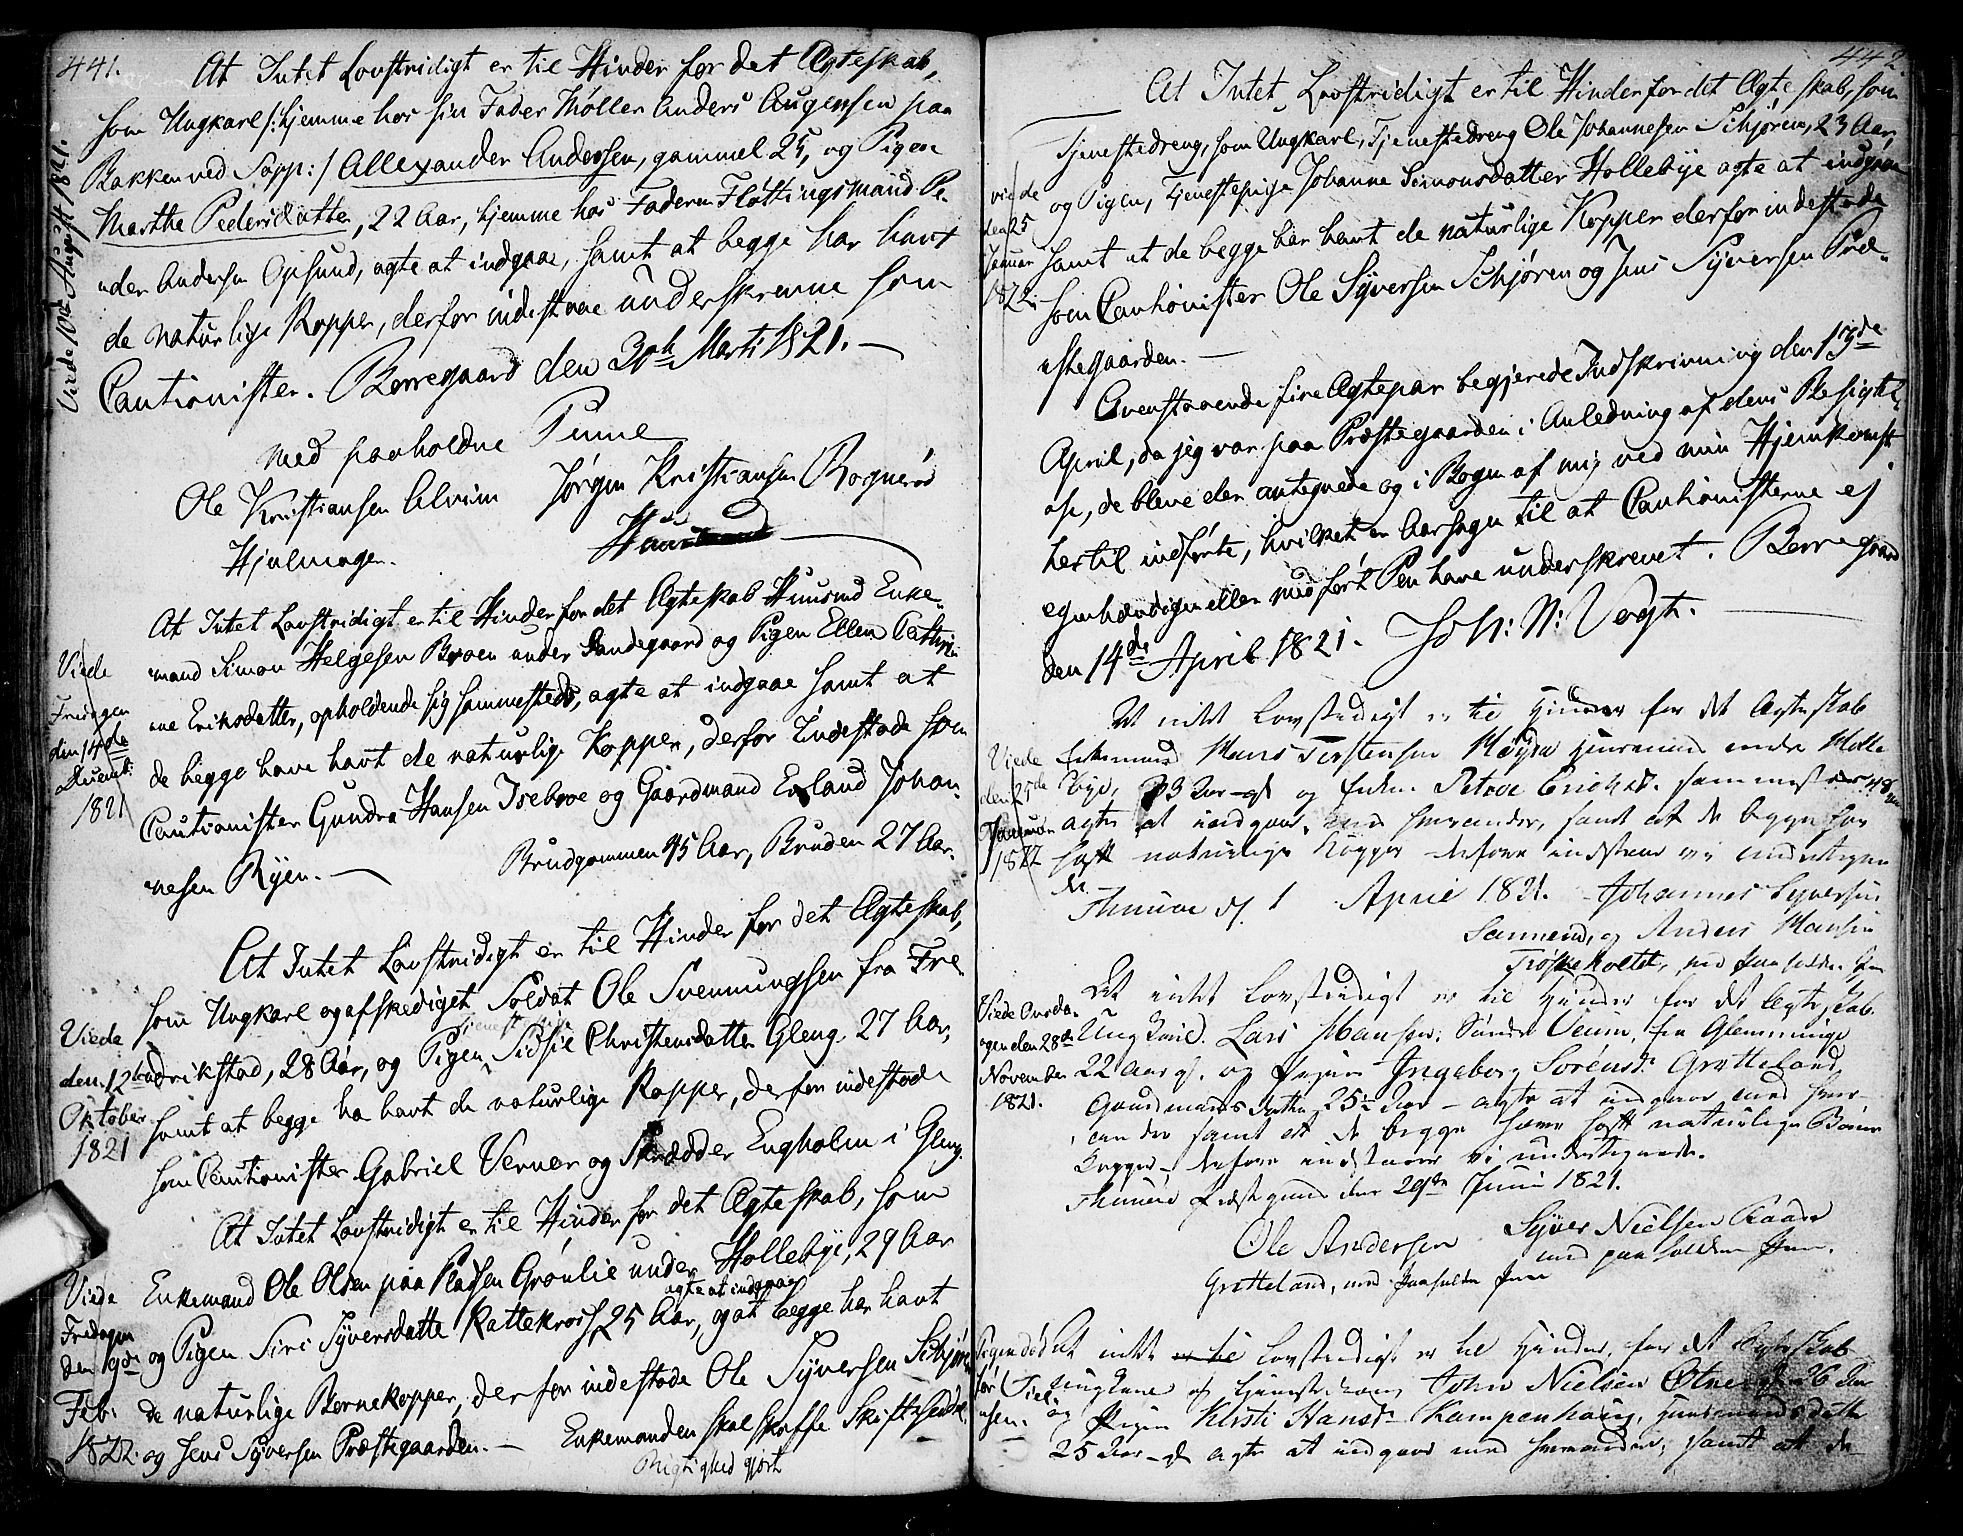 441.
At Intet Lovstridigt er til Hinder for det Ægteskab,
som Ungkarl /: hjemme hos sin Fader Møller Anders Augensen paa
Bakken ved Sopp :/ Allexander Andersen, gammel 25, og Pigen
Marthe Pedersdatter, 22 Aar, hjemme hos Faderen Fløttingsmand Pe-
der Andersen Opsund, agte at indgaae, samt at begge har havt
de naturlige Kopper, derfor indestaae underskrevne som
Cautionister. Borregaard den 30th Marti 1821. —
Viede 10de August 1821.
med paaholdne Penne
Ole Kristiansen Alvim Jørgen Kristiansen Rognerød
Hjulmager. Huusmand
At Intet Lovstridigt er til Hinder for det Ægteskab Huusmd Enke-
mand Simon Helgesen Broen under Sandegaard og Pigen Ellen Cathri-
ne Eriksdatter, opholdende sig sammesteds, agte at indgaae samt at
de begge have havt de naturlige Kopper, derfor Indestode som
Cautionister Gundro Hansen Isebroe og Gaardmand Erland Johan-
nesen Ryen. — Brudgommen 45 Aar, Bruden 27 Aar.
Viede
Fredagen
den 14de
Decemb:
1821
At Intet Lovstridigt er til Hinder for det Ægteskab,
som Ungkarl og afskediget Soldat Ole Svennungsen fra Fre-
drikstad, 28 Aar, og Pigen, Tjenestepige Sidsil Christensdatter Gleng 27 Aar,
samt at begge ha havt de naturlige Kopper, derfor indestode
som Cautionister Gabriel Verner og Skrædder Engholm i Gleng.
Viede
den 12te
Oktober
1821
At Intet Lovstridigt er til Hinder for det Ægteskab, som
Enkemand Ole Olsen paa Pladsen Grønlie under Hollebye, 29 Aar
og Pigen Siri Syversdatte Kattekros, 25 Aar, agte at indgaae, og at begge har havt
de naturlige Bornekopper, derfor indestode Ole Syversen Schjøren
og Jens Syversen Præstegaarden. — Enkemanden skal skaffe Skifte
Rigtighed gjort
Viede
Fredagen
den
Feb:
1822.
442.
At Intet Lovstridigt er til Hinder for det Ægteskab, som
Tjenestedreng, som Ungkarl, Tjenestedreng Ole Johannesen Schjøren, 23 Aar,
og Pigen, Tjenestepige Johanne Simonsdatter Hollebye agte at indgaae
samt at de begge har havt de naturlige Kopper derfor indestode
som Cautionister Ole Syversen Schjøren og Jens Syversen Præ-
stegaarden. —
viede
den 25
Januar
1822.
Ovenstaaende fire Ægtepar begjerede Indskrivning den 13de
April, da jeg var paa Præstegaarden i Anledning af dens Besigtel-
se, de bleve der antegnede og i Bogen af mig ved min Hjemkomst
hertil indførte, hvilket er Aarsagen til at Cautionisterne ej
egenhændigen eller med ført Pen have underskrevet. Borregaard
den 14de April 1821. Joh: N: Vogt.
At intet Lovstridigt er til Hinder for det Ægteskab
Enkemand Hans Torstensen Høyda Huusmand under Holle
bye, 73 Aar gl og Enken Petroe Erichsd. sammesteds 48
agter at indgaae med hverandre, samt at de begge har
haft naturlige Kopper derfore indstaae vi undertegne
de
Thunøe d. 1 April 1821. Johannes Syversen
Sannerød, og Anders Hansen
Troskeholtet, med paaholden Pen
Viede
den 25de
Januar
1822
At intet Lovstridigt er til Hinder for det Ægteskab
Ungkarl Lars Hansen, Søndr Veum, fra Glemminge
22 Aar gl. og Pigen Ingeborg Sørensd. Grotteland
Gaardmands datter 25½ Aar agte at indgaae med hver-
andre samt at de begge have haft naturlige Børne
Kopper derfore indstaaer vi undertegnede.
Thunøe Præstegaard den 29de Junii 1821.
Ole Andersen Syver Nielsen Raade
Grotteland, med paaholden Pen med paaholden Pen.
Viede Onsda-
gen den 28de
November
1821.
At intet er til Lovstridigt er til Hinder for det Ægteskab
Ungkarl og Tjenestekarl John Nielsen 26 Aar
og Pigen Kirsti Hansd. Kampenhaug, Huusmandsdatter
25 Aar gl agte at indgaae med hverandre, samt at de
Pigen død
før Viel-
sen.